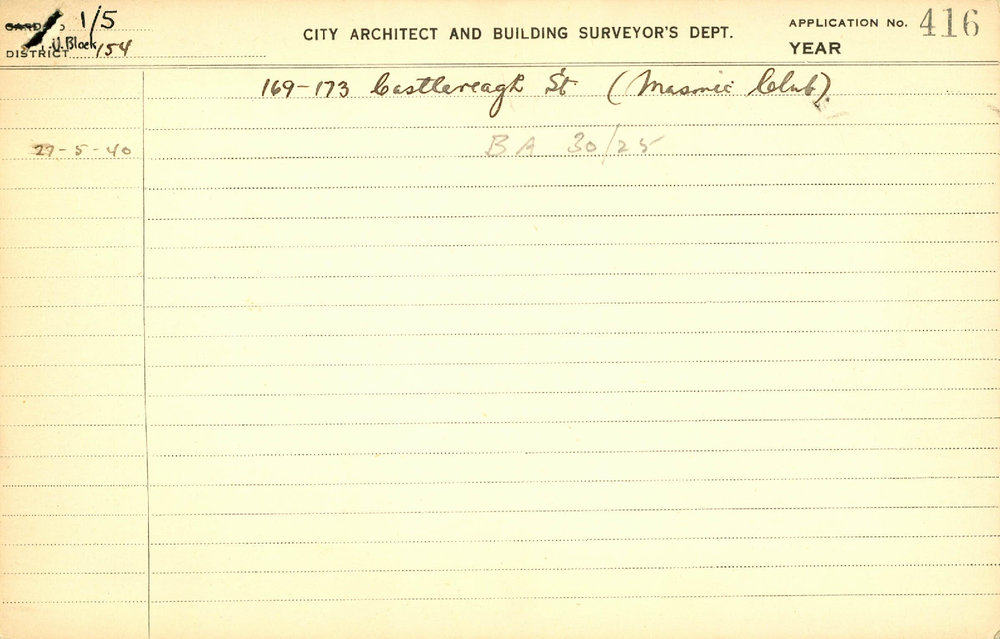 CARD 1/5
CITY ARCHITECT AND BUILDING SURVEYOR'S DEPT.
APPLICATION No. 416
DISTRICT U. Block 154
YEAR
169-173 Castlereagh St (Masonic Club).
27-5-40 BA 30/25